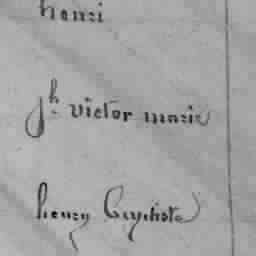 henri
jh victor marie
henry Baptiste